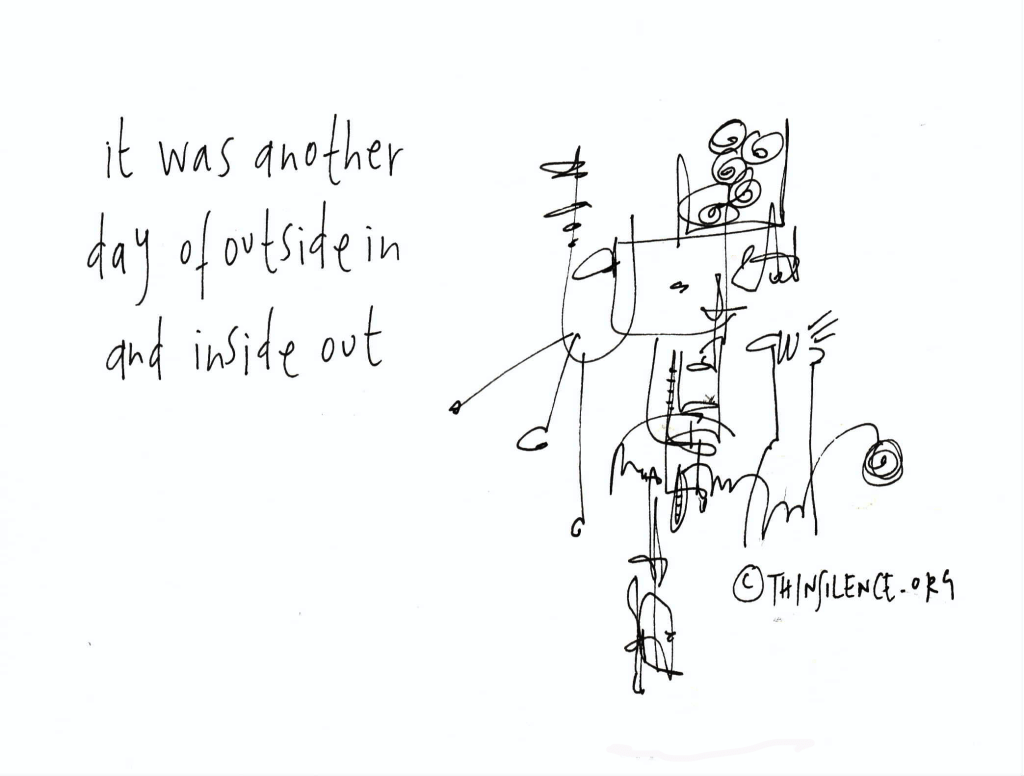 it was another
day of outside in
and inside out
© THINSILENCE.ORG